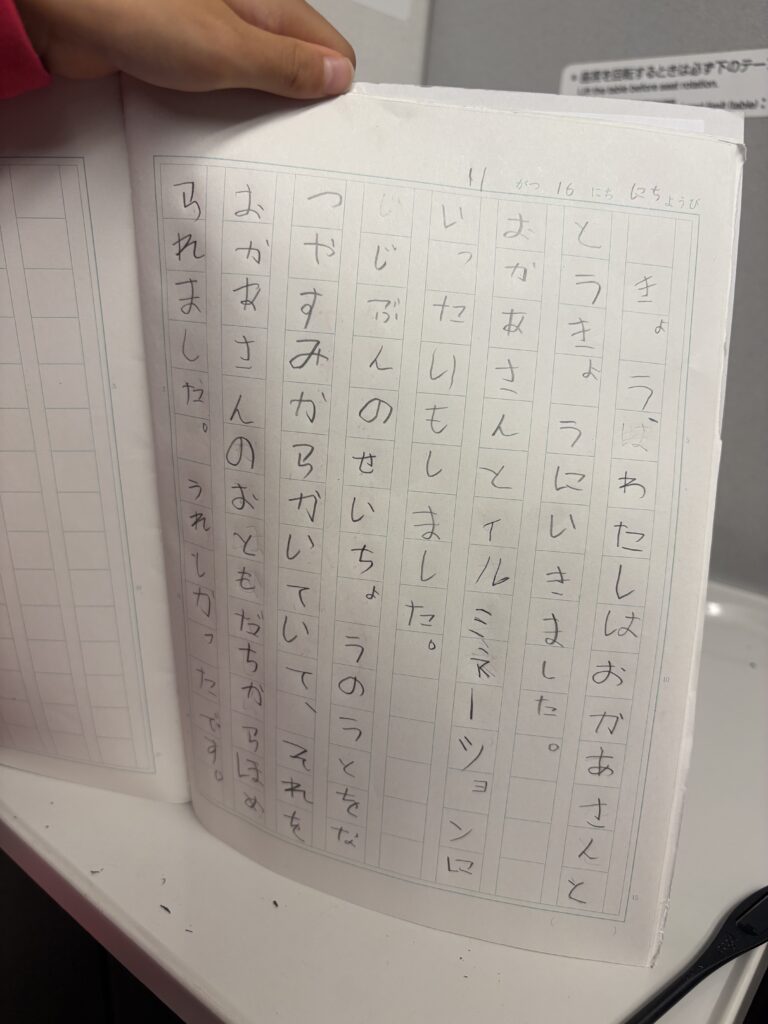 * 座席を回転するときは必ず下のテー
Lift the table before seat rotation.
11 がつ 16 にち にちようび
きょう、わたしはおかあさんと
とうきょうにいきました。
おかあさんとイルミネーションに
いったりもしました。
じぶんのせいちょうのうとをな
つやすみからかいていて、それを
おかあさんのおともだちからほめ
られました。うれしかったです。